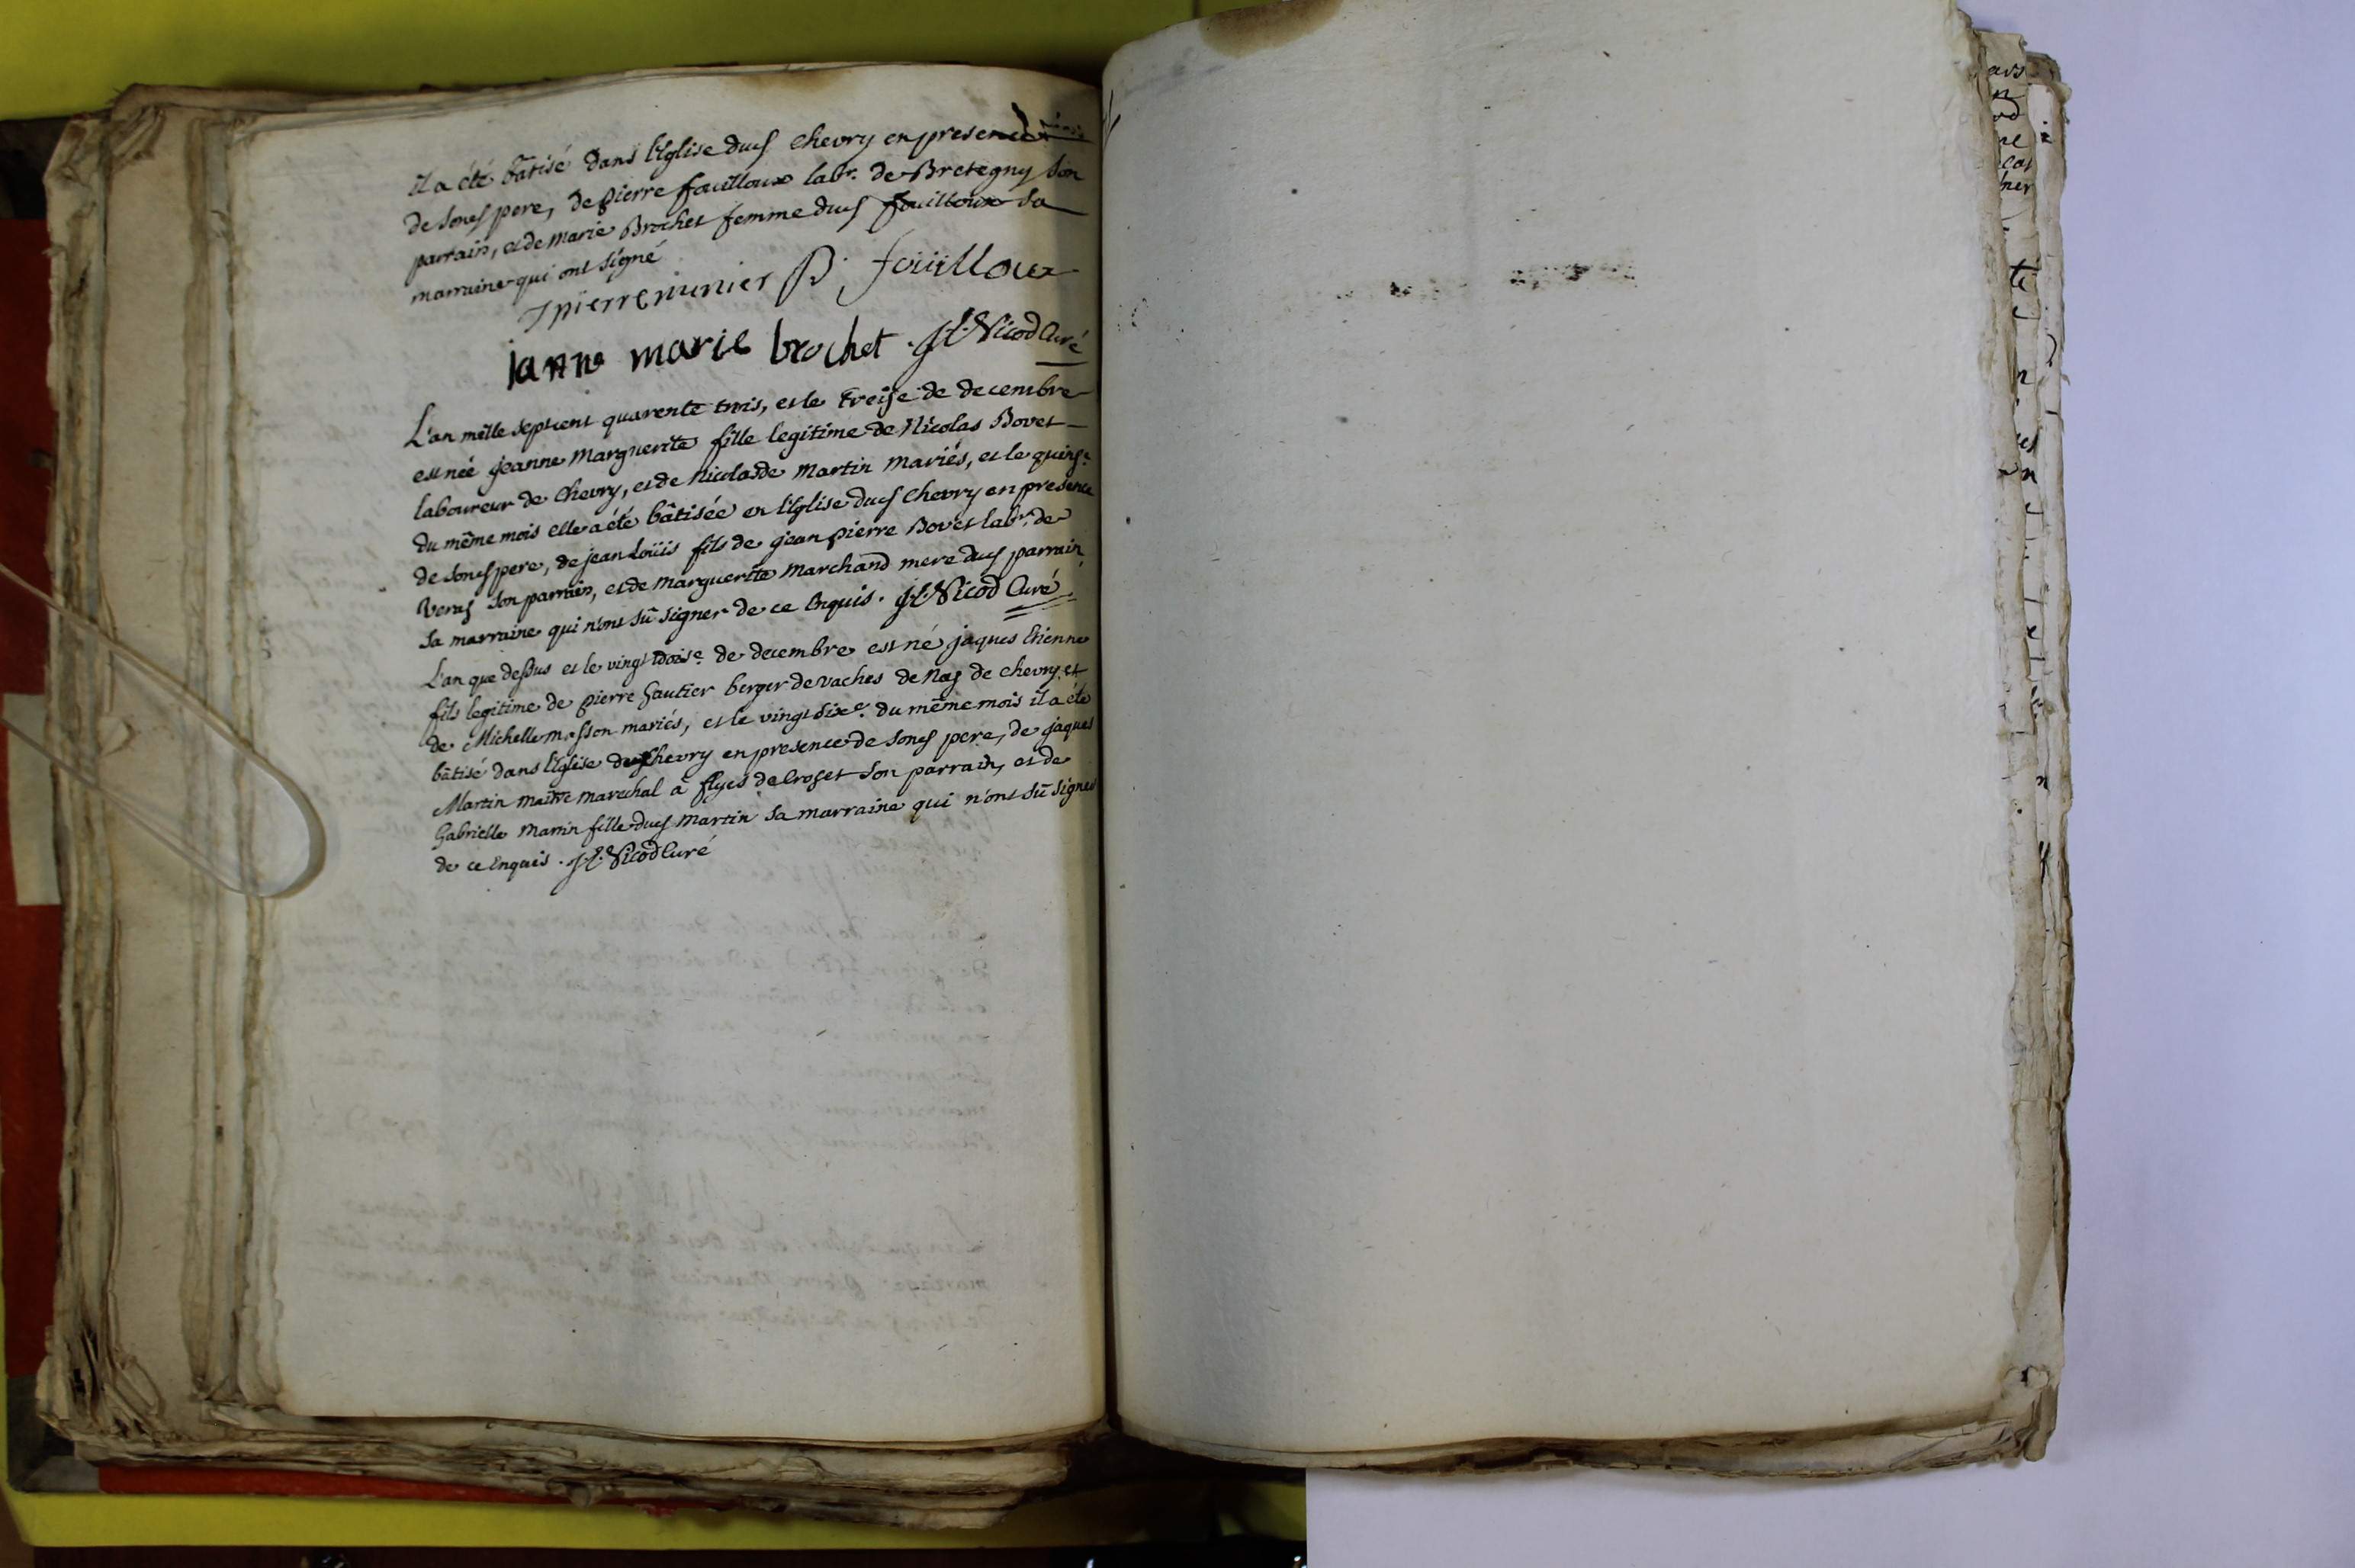 il a été bâtisé dans l'Eglise dud Chevry en presence
de sond pere, de pierre fouilloux labr. de Bretegny son
parrain, et de marie Brochet femme dud fouilloux sa
marraine qui ont signé
pierre munier P. fouilloux
janne marie brochet . Nicod Curé
L'an mille septcent quarente trois, et le treise de decembre
est née jeanne marguerite fille legitime de Nicolas Bovet
laboureur de Chevry, et de Nicolarde Martin mariés, et le quinse.
du même mois elle a été bâtisée en l'Eglise dud Chevry en presence
de sond pere, de jean Loüis fils de jean pierre Bovet labr. de
Veras son parrain, et de marguerite Marchand mere dud parrain
sa marraine qui n'ont sû signer de ce Enquis . Nicod Curé
L'an que dessus et le vingt troise. de decembre est né jaques Etienne
fils legitime de pierre Gautier berger de vaches de Nas de Chevry, et
de Michelle masson mariés, et le vingt sixe. du même mois il a été
bâtisé dans l'Eglise dud Chevry en presence de sond pere, de jaques
Martin maitre marechal à flyes de Croset son parrain, et de
Gabrielle Martin fille dud Martin sa marraine qui n'ont sû signer
de ce Enquis . Nicod Curé